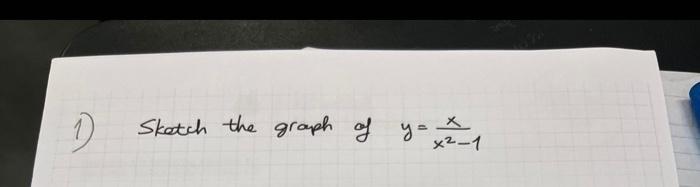 1) Sketch the graph of y = x/(x² - 1)